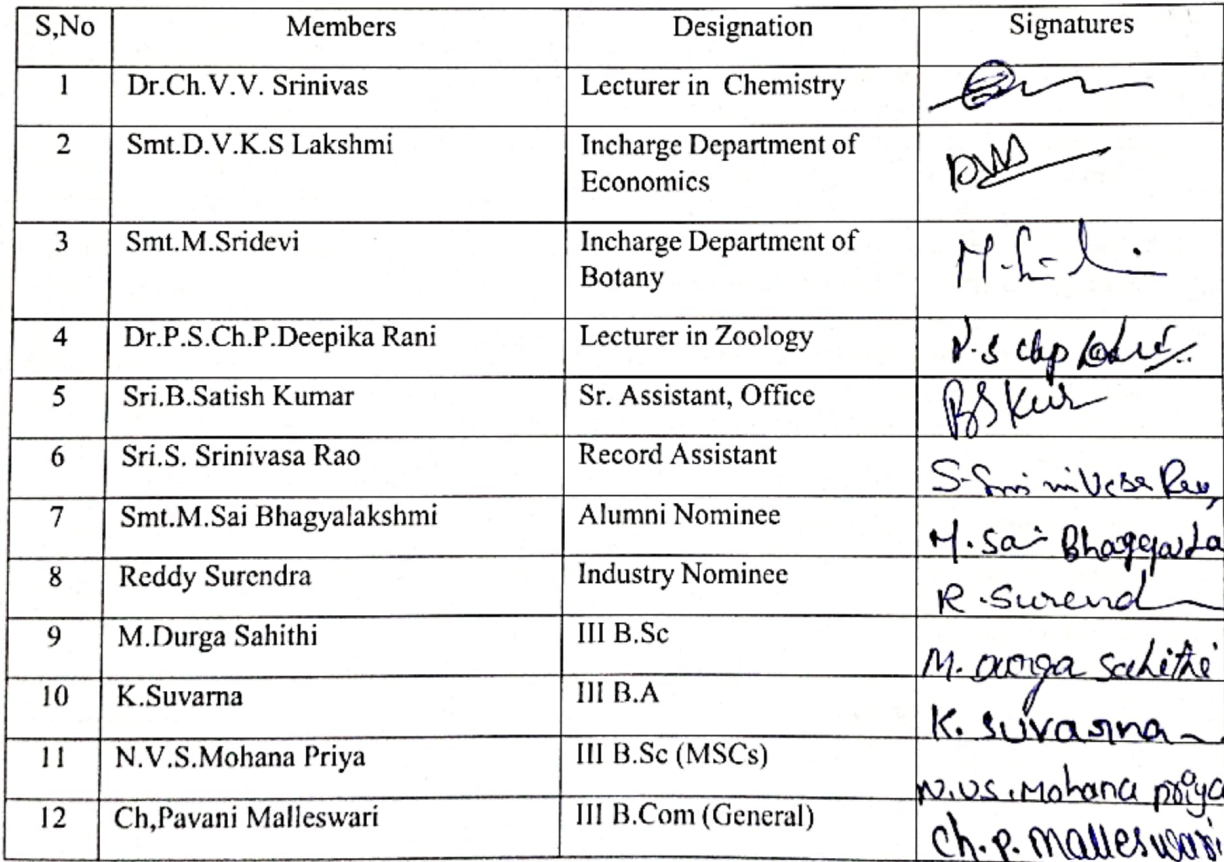 S,No Members Designation Signatures
1 Dr.Ch.V.V. Srinivas Lecturer in Chemistry
2 Smt.D.V.K.S Lakshmi Incharge Department of
Economics
3 Smt.M.Sridevi Incharge Department of
Botany
4 Dr.P.S.Ch.P.Deepika Rani Lecturer in Zoology
5 Sri.B.Satish Kumar Sr. Assistant, Office
6 Sri.S. Srinivasa Rao Record Assistant
7 Smt.M.Sai Bhagyalakshmi Alumni Nominee M.Sai
8 Reddy Surendra Industry Nominee R.Surend
9 M.Durga Sahithi III B.Sc M. Durga Sahithi
10 K.Suvarna III B.A K. Suvarna
11 N.V.S.Mohana Priya III B.Sc (MSCs) N.V.S.Mohana priya
12 Ch,Pavani Malleswari III B.Com (General) Ch.P. Malleswari